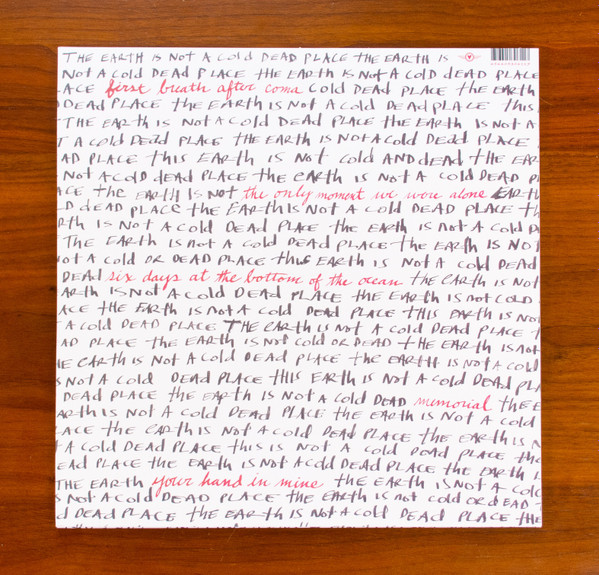 THE EARTH IS NOT A COLD DEAD PLACE THE EARTH IS
NOT A COLD DEAD PLACE THE EARTH IS NOT A COLD DEAD PLACE
ACE first breath after coma COLD DEAD PLACE THE EARTH
DEAD PLACE THE EARTH IS NOT A COLD DEAD PLACE THIS
THE EARTH IS NOT A COLD DEAD PLACE THE EARTH IS NOT A
T A COLD DEAD PLACE THE EARTH IS NOT A COLD DEAD PLACE
AD PLACE THIS EARTH IS NOT COLD AND DEAD THE EAR
NOT A COLD DEAD PLACE THE EARTH IS NOT A COLD DEAD PLACE
ACE THE EARTH IS NOT the only moment we were alone EARTH
D DEAD PLACE THE EARTH IS NOT A COLD DEAD PLACE TH
RTH IS NOT A COLD DEAD PLACE THE EARTH IS NOT A COLD D
THE EARTH IS NOT A COLD DEAD PLACE THE EARTH IS NOT
NOT A COLD OR DEAD PLACE THIS EARTH IS NOT A COLD DEAD
DEAD six days at the bottom of the ocean THE EARTH IS NOT
ARTH IS NOT A COLD DEAD PLACE THE EARTH IS NOT COLD
ACE THE EARTH IS NOT A COLD DEAD PLACE THIS EARTH IS NOT
T A COLD DEAD PLACE THE EARTH IS NOT A COLD DEAD PLACE T
AD PLACE THE EARTH IS NOT COLD OR DEAD THE EARTH IS NOT
HE EARTH IS NOT A COLD DEAD PLACE THE EARTH IS NOT A COLD
IS NOT A COLD DEAD PLACE THIS EARTH IS NOT A COLD DEAD PL
DEAD PLACE THE EARTH IS NOT A COLD DEAD memorial THE E
ARTH IS NOT A COLD DEAD PLACE THE EARTH IS NOT A COLD
T IS NOT A COLD DEAD PLACE THE EARTH IS N
T A COLD DEAD PLACE THIS IS NOT A COLD DEAD PLACE THE
EAD PLACE THE EARTH IS NOT A COLD DEAD PLACE THE EARTH IS
THE EARTH your hand in mine THE EARTH IS NOT A COLD
S NOT A COLD DEAD PLACE THE EARTH IS NOT COLD OR DEAD T
ARTH IS NOT A COLD DEAD PLACE THE EARTH IS NOT A COLD DEAD PLACE THE